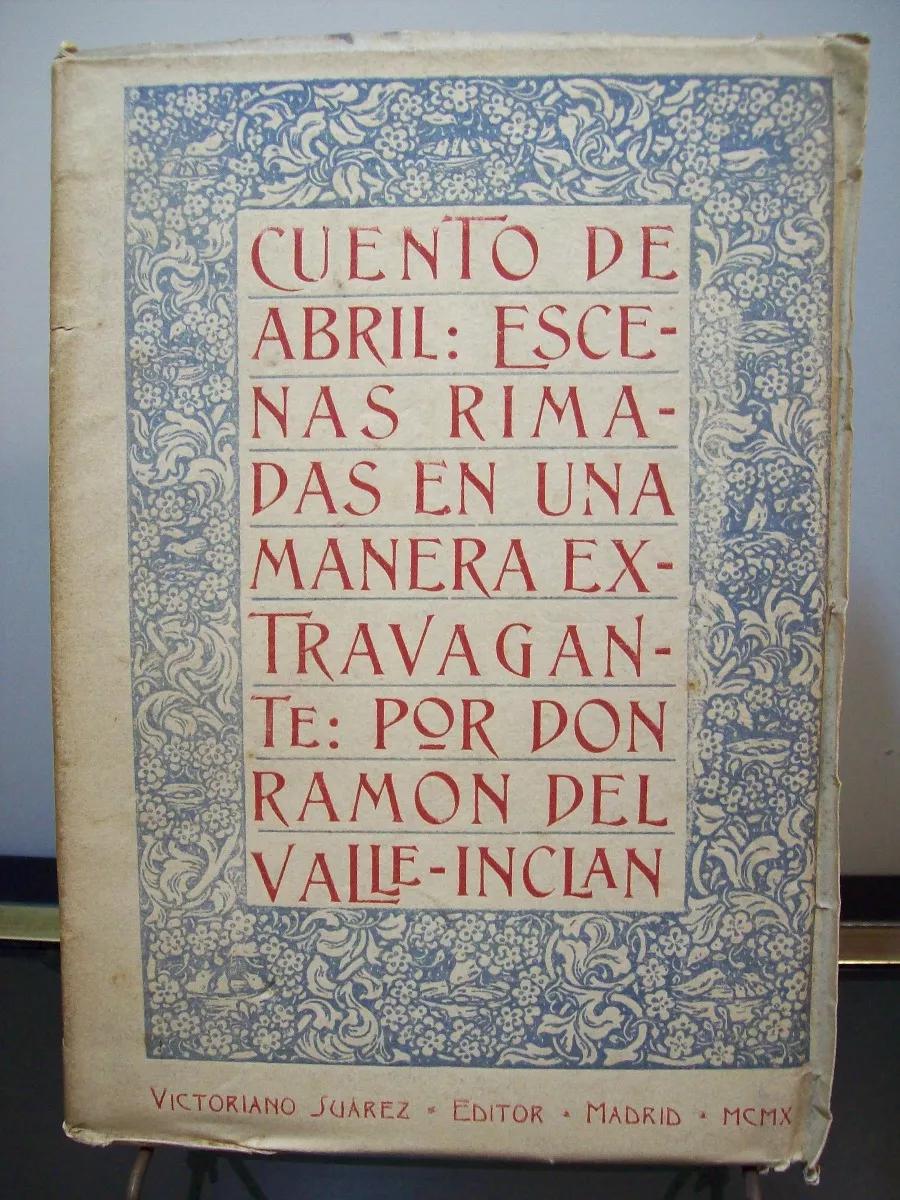 CUENTO DE
ABRIL: ESCE-
NAS RIMA-
DAS EN UNA
MANERA EX-
TRAVAGAN-
TE: POR DON
RAMON DEL
VALLE-INCLAN
VICTORIANO SUÁREZ • EDITOR • MADRID • MCMX